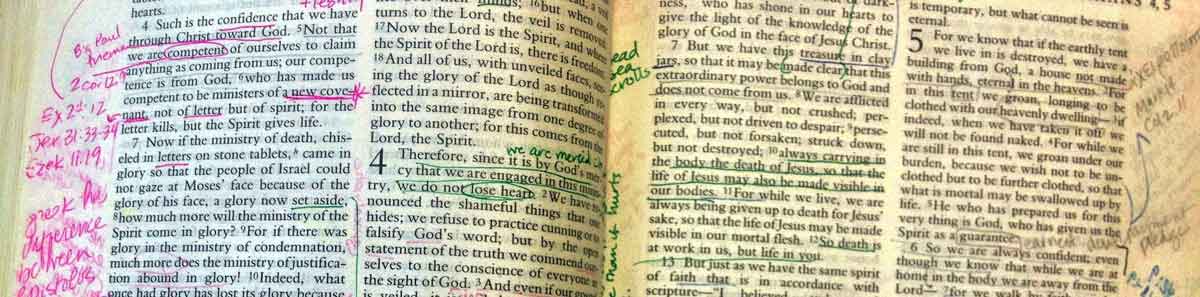 hearts.
4 Such is the confidence that we have
through Christ toward God. 5Not that
we are competent of ourselves to claim
anything as coming from us; our compe-
tence is from God, 6who has made us
competent to be ministers of a new cove-
nant, not of letter but of spirit; for the
letter kills, but the Spirit gives life.
7 Now if the ministry of death, chis-
eled in letters on stone tablets, came in
glory so that the people of Israel could
not gaze at Moses' face because of the
glory of his face, a glory now set aside,
8how much more will the ministry of the
Spirit come in glory? 9For if there was
glory in the ministry of condemnation,
much more does the ministry of justifica-
tion abound in glory! 10Indeed, what
once had glory has lost its glory because
2 Cor 12:9
Ex 24:12
Jer 31:33-34
Ezek 11:19
difference
between
16but when one
turns to the Lord, the veil is removed.
17Now the Lord is the Spirit, and where
the Spirit of the Lord is, there is freedom.
18And all of us, with unveiled faces, see-
ing the glory of the Lord as though re-
flected in a mirror, are being transformed
into the same image from one degree of
glory to another; for this comes from the
Lord, the Spirit.
we are
4 Therefore, since it is by God's mer-
cy that we are engaged in this minis-
try, we do not lose heart. 2We have re-
nounced the shameful things that one
hides; we refuse to practice cunning or to
falsify God's word; but by the open
statement of the truth we commend our-
selves to the conscience of everyone in
the sight of God. 3And even if our gospel
is veiled, it
ead
sea
scrolls
hurts
ness, who has shone in our hearts to
give the light of the knowledge of the
glory of God in the face of Jesus Christ.
7 But we have this treasure in clay
jars, so that it may be made clear that this
extraordinary power belongs to God and
does not come from us. 8We are afflicted
in every way, but not crushed; per-
plexed, but not driven to despair; 9perse-
cuted, but not forsaken; struck down,
but not destroyed; 10always carrying in
the body the death of Jesus, so that the
life of Jesus may also be made visible in
our bodies. 11For while we live, we are
always being given up to death for Jesus'
sake, so that the life of Jesus may be made
visible in our mortal flesh. 12So death is
at work in us, but life in you.
13 But just as we have the same spirit
of faith that is in accordance with
scripture—"I believed
4, 5
is temporary, but what cannot be seen is
eternal.
5 For we know that if the earthly tent
we live in is destroyed, we have a
building from God, a house not made
with hands, eternal in the heavens. 2For
in this tent we groan, longing to be
clothed with our heavenly dwelling— 3if
indeed, when we have taken it off we
will not be found naked. 4For while we
are still in this tent, we groan under our
burden, because we wish not to be un-
clothed but to be further clothed, so that
what is mortal may be swallowed up by
life. 5He who has prepared us for this
very thing is God, who has given us the
Spirit as a guarantee.
6 So we are always confident; even
though we know that while we are at
home in the body we are away from the
Lord— 7for we walk by faith
pledge